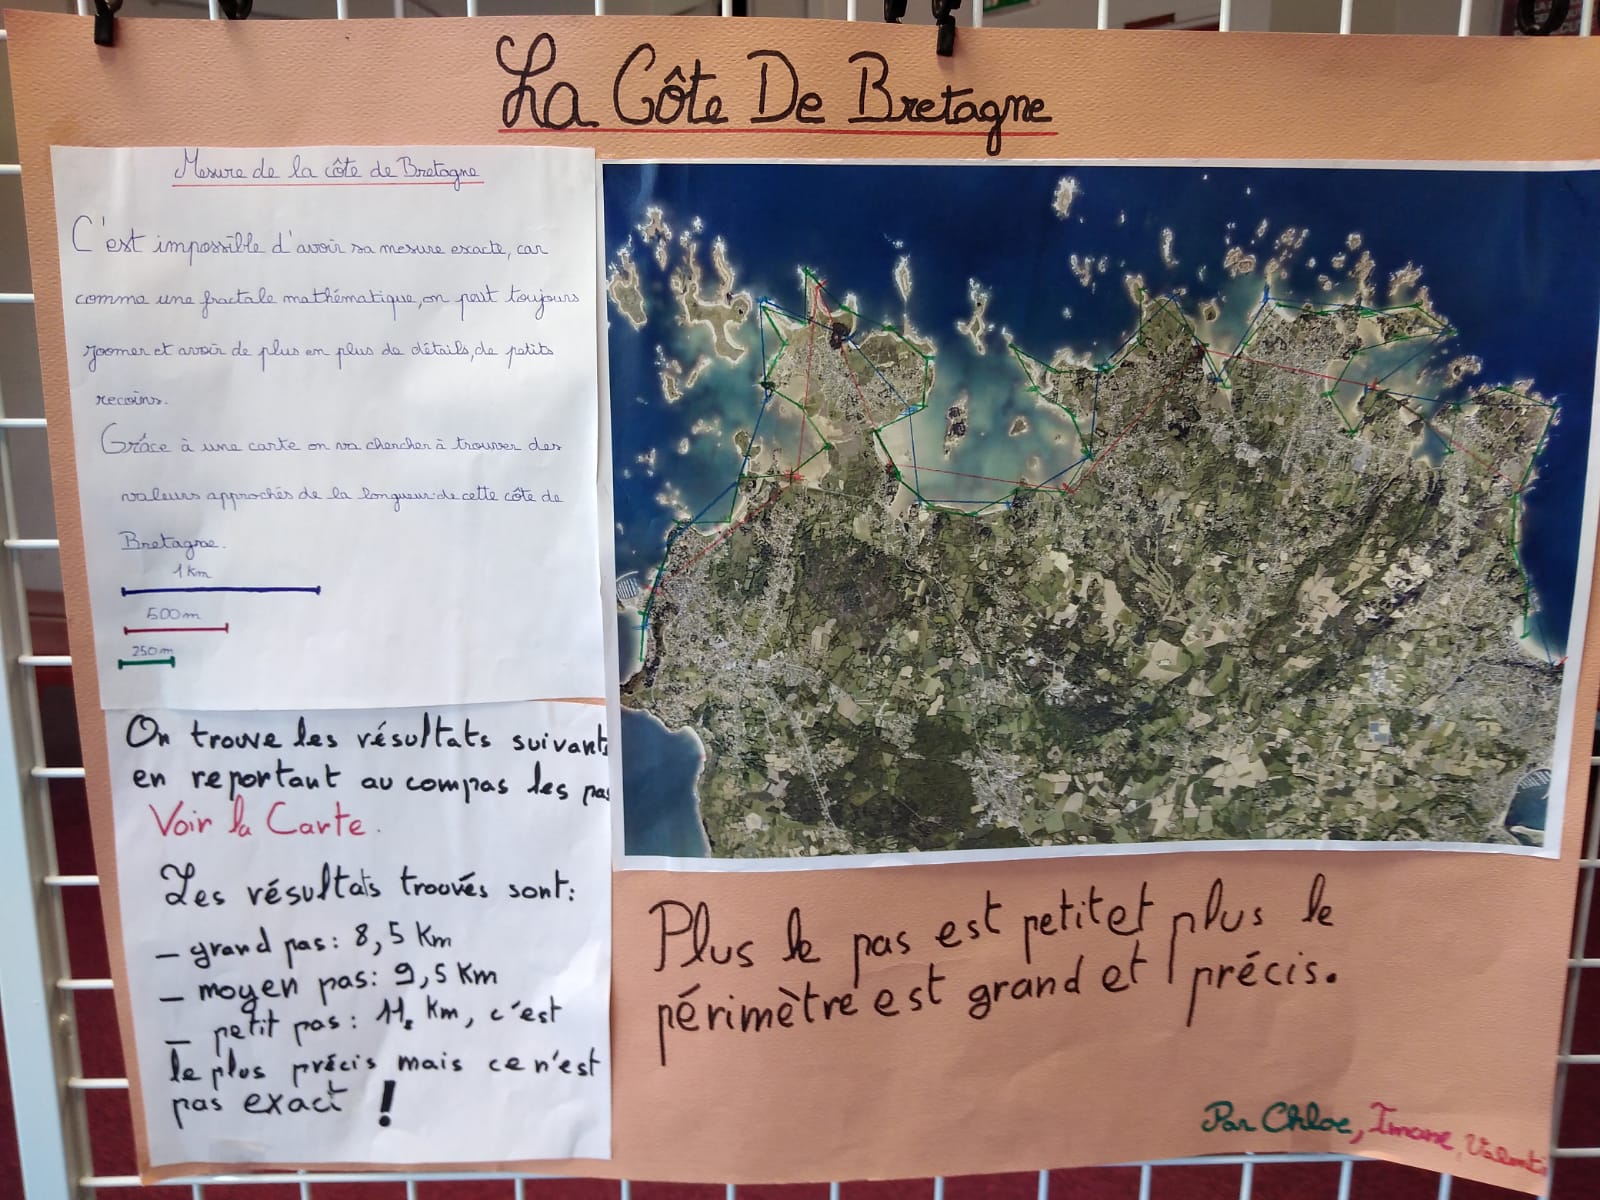 La Côte De Bretagne
Mesure de la côte de Bretagne
C'est impossible d'avoir sa mesure exacte, car
comme une fractale mathématique, on peut toujours
zoomer et avoir de plus en plus de détails, de petits
recoins.
Grâce à une carte on va chercher à trouver des
valeurs approchés de la longueur de cette côte de
Bretagne.
1 Km
500 m
250 m
On trouve les résultats suivants
en reportant au compas les pas
Voir la Carte.
Les résultats trouvés sont:
- grand pas: 8,5 Km
- moyen pas: 9,5 Km
- petit pas: 11, Km, c'est
le plus précis mais ce n'est
pas exact !
Plus le pas est petit et plus le
périmètre est grand et précis.
Par Chloe, Imane, Valenti